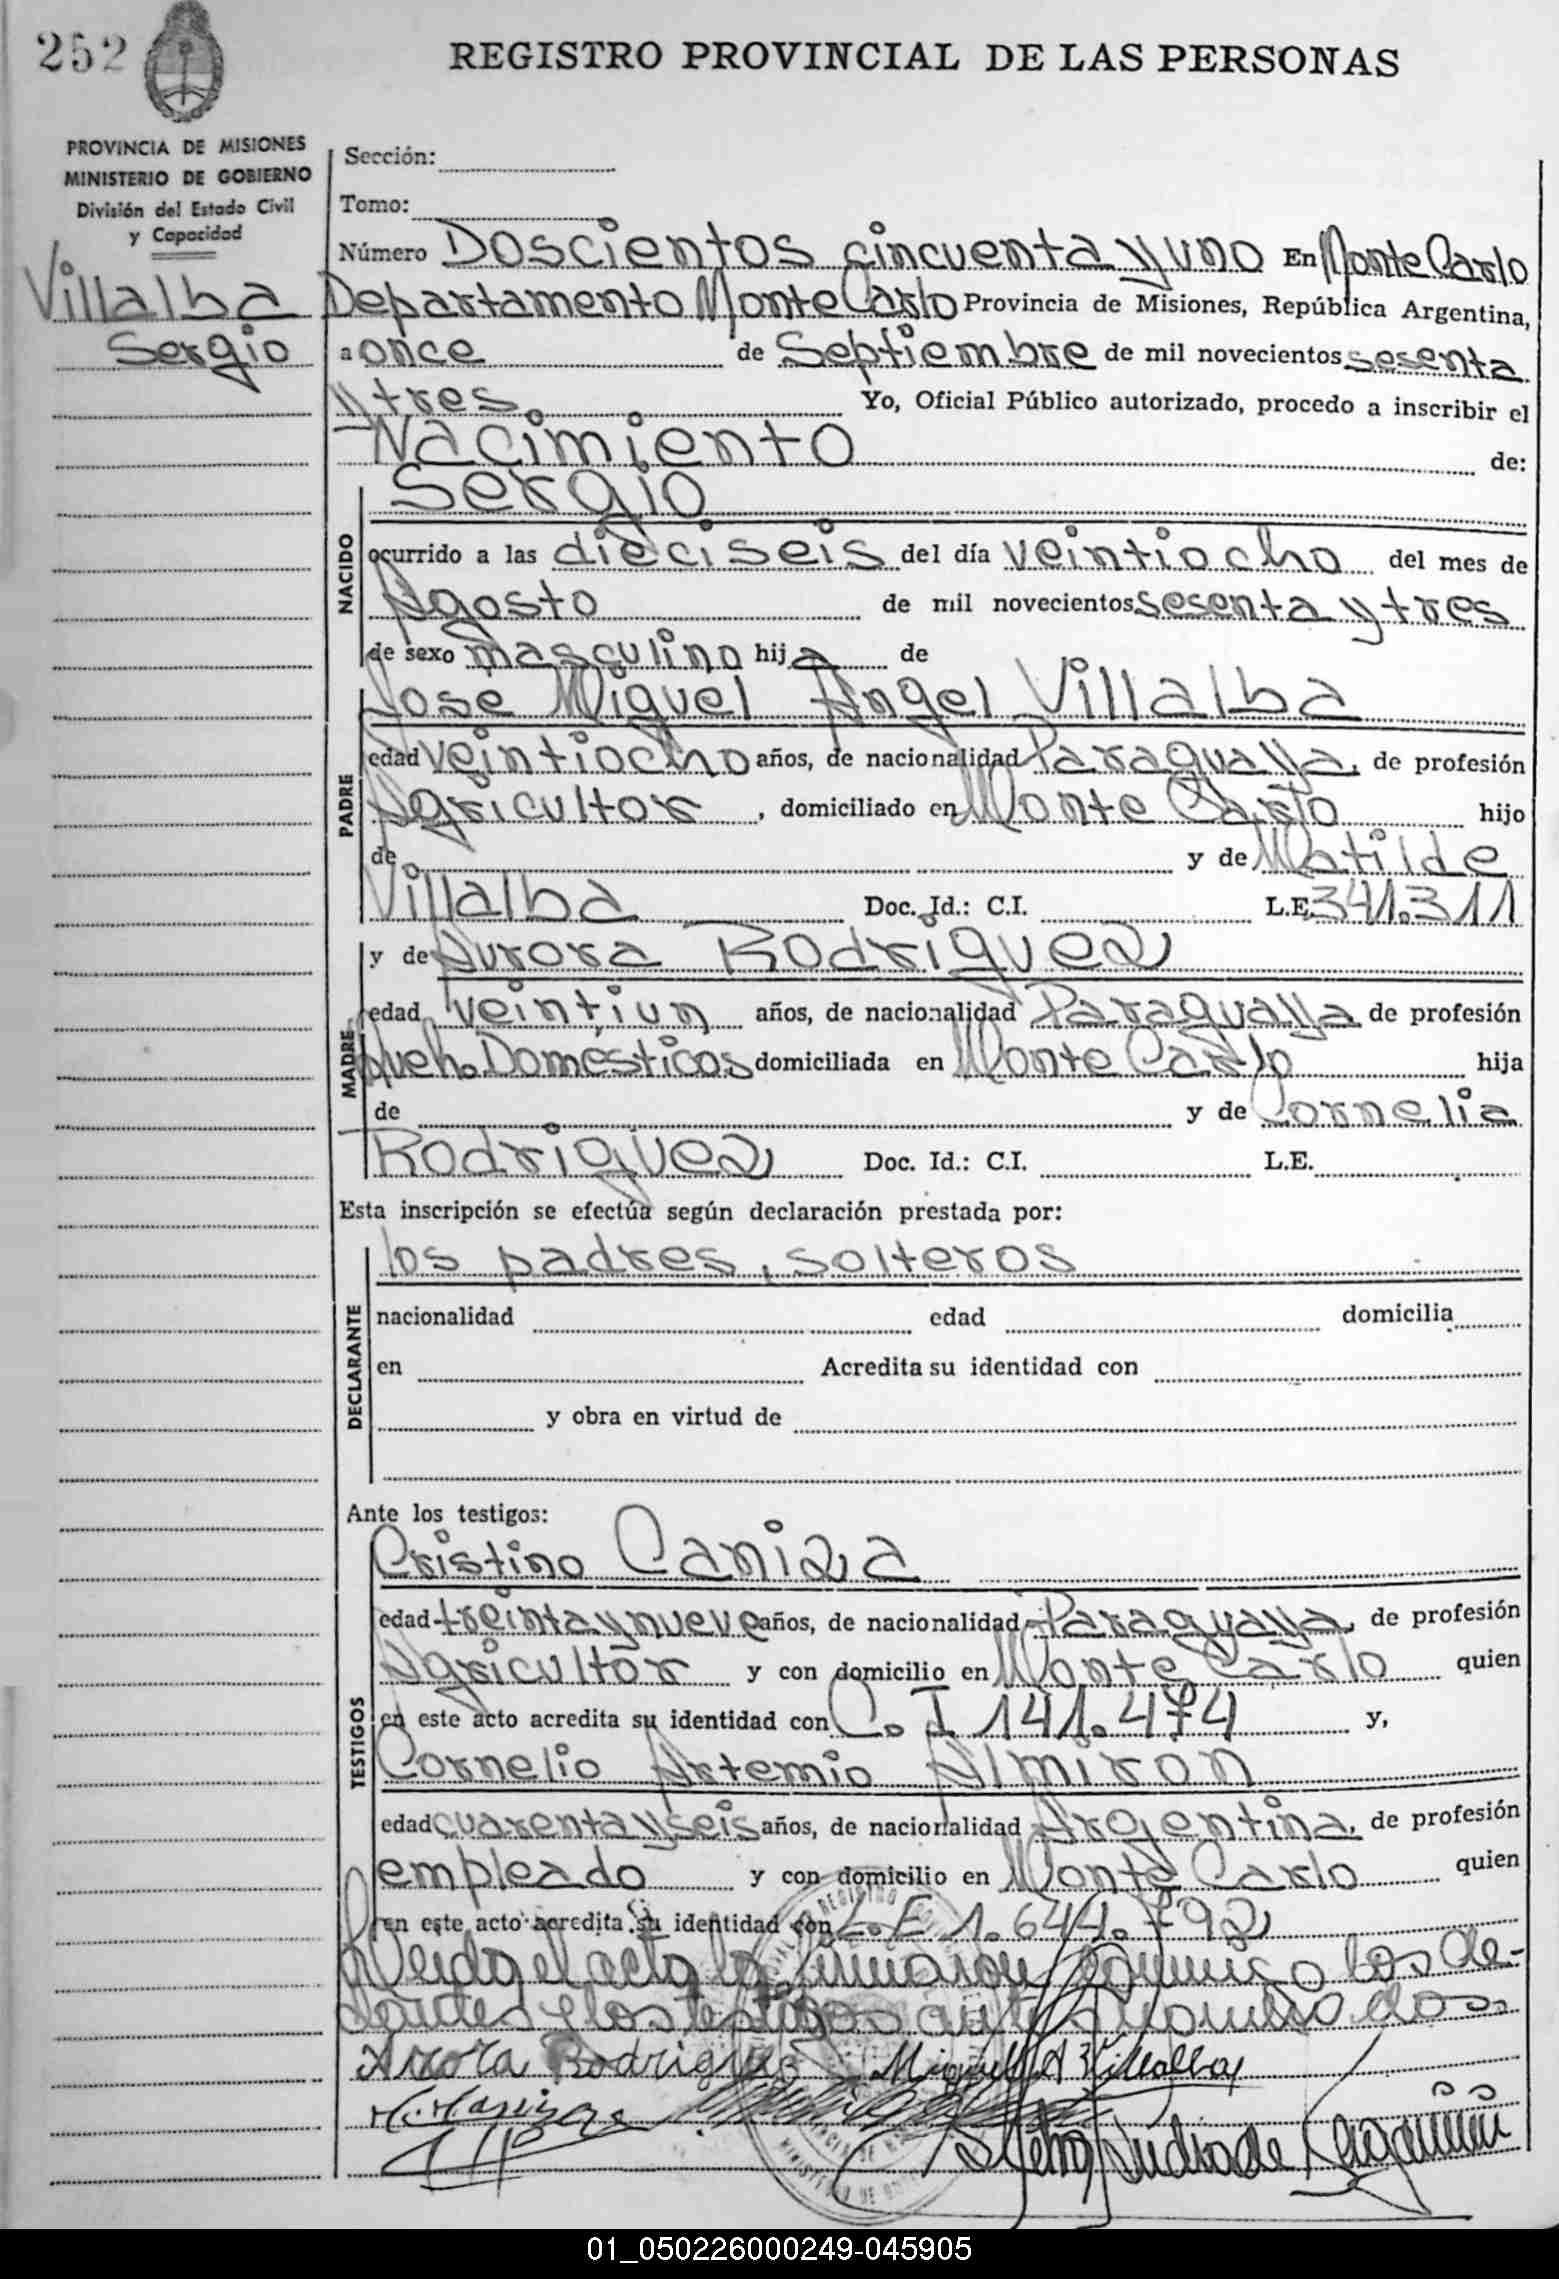 252
REGISTRO PROVINCIAL DE LAS PERSONAS
PROVINCIA DE MISIONES
MINISTERIO DE GOBIERNO
División del Estado Civil
y Capacidad
Villalba
Sergio
Sección:
Tomo:
Número Doscientos cincuenta y uno En Monte Carlo
Departamento Monte Carlo Provincia de Misiones, República Argentina,
a once de Septiembre de mil novecientos sesenta
y tres. Yo, Oficial Público autorizado, procedo a inscribir el
Nacimiento de:
NACIDO
Sergio
ocurrido a las dieciseis del día veintiocho del mes de
Agosto de mil novecientos sesenta y tres
de sexo masculino hija de
PADRE
Jose Miguel Angel Villalba
edad veintiocho años, de nacionalidad Paraguaya, de profesión
Agricultor, domiciliado en Monte Carlo hijo
de y de Matilde
Villalba Doc. Id.: C.I. L.E. 341.311
MADRE
y de Aurora Rodriguez
edad veintiun años, de nacionalidad Paraguaya de profesión
Queh. Domésticos domiciliada en Monte Carlo hija
de y de Cornelia
Rodriguez Doc. Id.: C.I. L.E.
Esta inscripción se efectúa según declaración prestada por:
DECLARANTE
los padres, solteros
nacionalidad edad domicilia
en Acredita su identidad con
y obra en virtud de
Ante los testigos:
TESTIGOS
Cristino Caniza
edad treinta y nueve años, de nacionalidad Paraguaya, de profesión
Agricultor y con domicilio en Monte Carlo quien
en este acto acredita su identidad con C. I 141.474 y,
Cornelio Artemio Almiron
edad cuarenta y seis años, de nacionalidad Argentina, de profesión
empleado y con domicilio en Monte Carlo quien
en este acto acredita su identidad con L.E 1.644.792
el acta la conmigo los de-
y los testigos
Aurora Rodriguez Miguel A Villalba
01_050226000249-045905